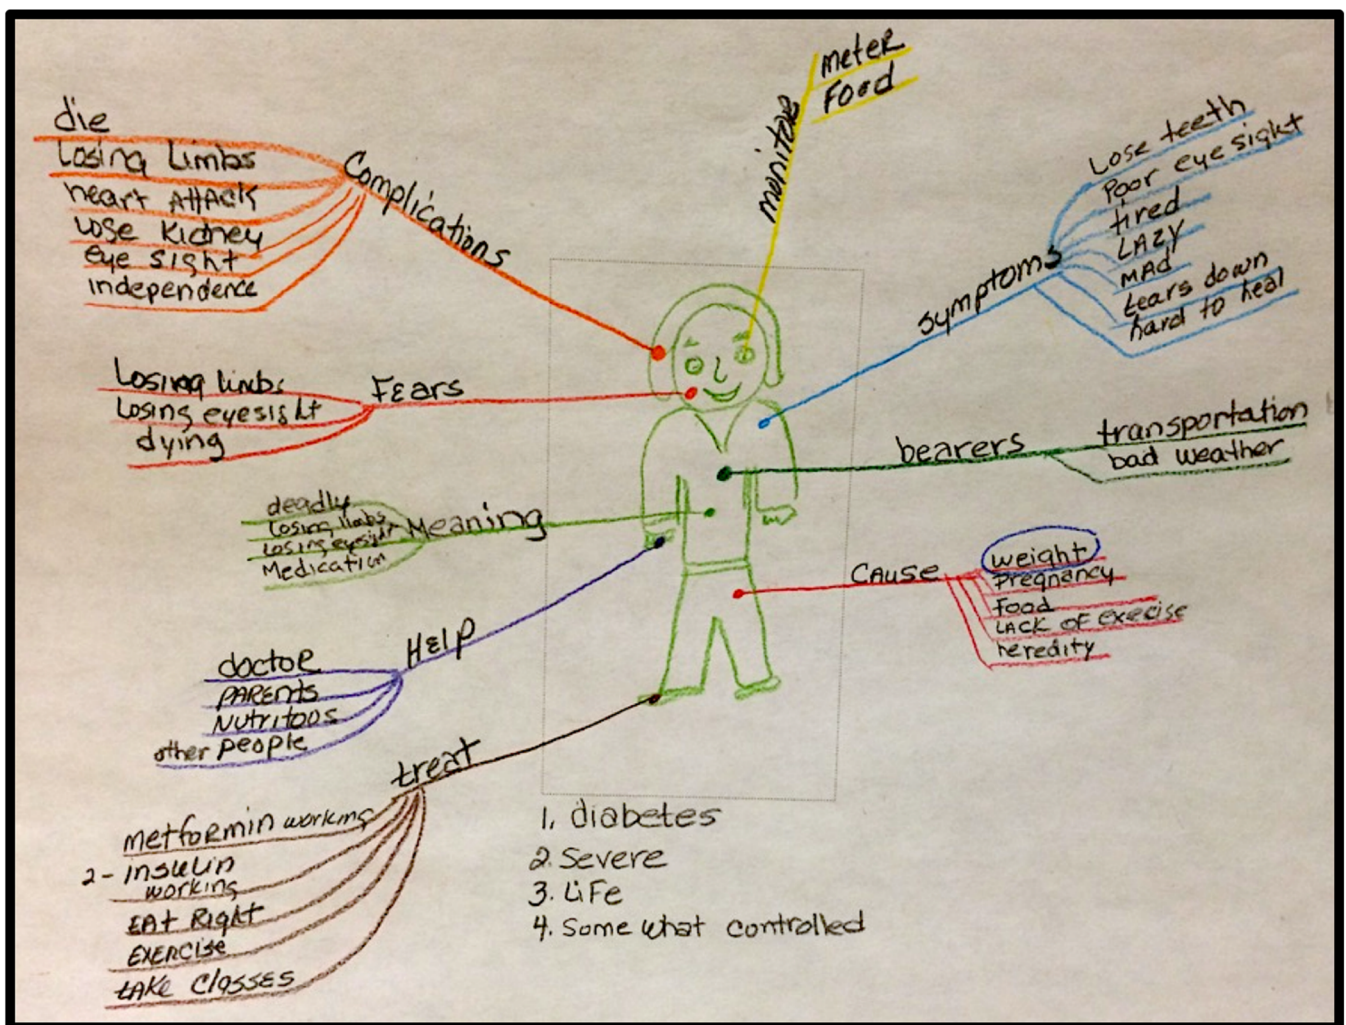 meter
Food
monitor
die
Losing Limbs
heart Attack
Lose Kidney
eye sight
independence
Complications
Lose teeth
Poor eye sight
tired
LAZY
MAd
tears down
hard to heal
symptoms
Losing limbs
Losing eyesight
dying
FEars
bearers
transportation
bad weather
deadly
Losing limbs
Losing eyesight
Medication
Meaning
CAUSE
weight
Pregnancy
Food
LACK OF Execise
heredity
HELP
doctor
PARENTS
NUtritoos
other people
treat
metformin working
2- Insulin
working
EAt Right
EXERCISE
tAKE Classes
1. diabetes
2. Severe
3. LiFe
4. Some what controlled